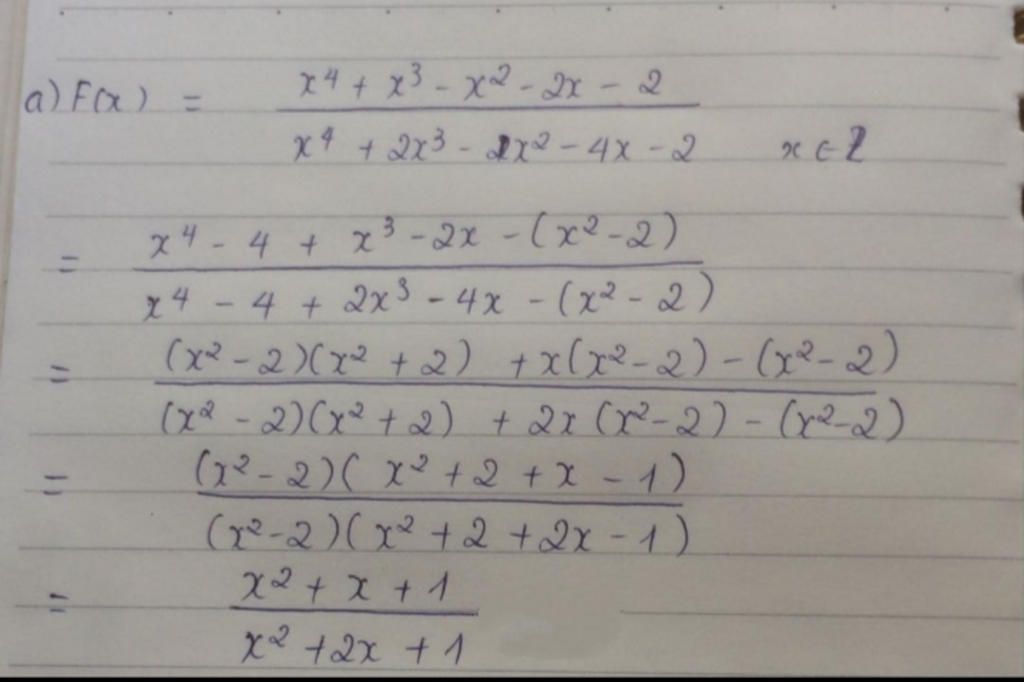 a) F(x) = x⁴ + x³ - x² - 2x - 2
x⁴ + 2x³ - x² - 4x - 2 x ∈ Z
= x⁴ - 4 + x³ - 2x - (x² - 2)
x⁴ - 4 + 2x³ - 4x - (x² - 2)
= (x² - 2)(x² + 2) + x(x² - 2) - (x² - 2)
(x² - 2)(x² + 2) + 2x(x² - 2) - (x² - 2)
= (x² - 2)(x² + 2 + x - 1)
(x² - 2)(x² + 2 + 2x - 1)
= x² + x + 1
x² + 2x + 1